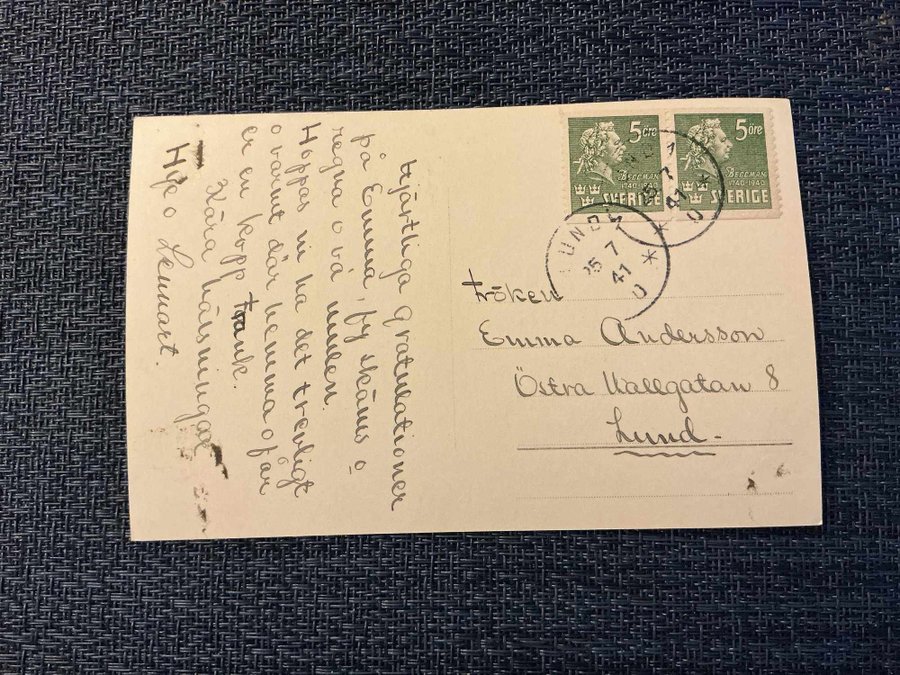 Hjärtliga gratulationer
på Emma, fy skäms o
regna o vå
Hoppas ni ha det trevligt
o varmt där hemma o får
er en kopp Frank.
Kära hälsningar
o Lennart.
5 öre
BELLMAN
1740-1940
SVERIGE
5 öre
BELLMAN
1740-1940
SVERIGE
LUND 1
25 7
41
LUND 1
7
41
Fröken
Emma Andersson
Östra Vallgatan 8
Lund.